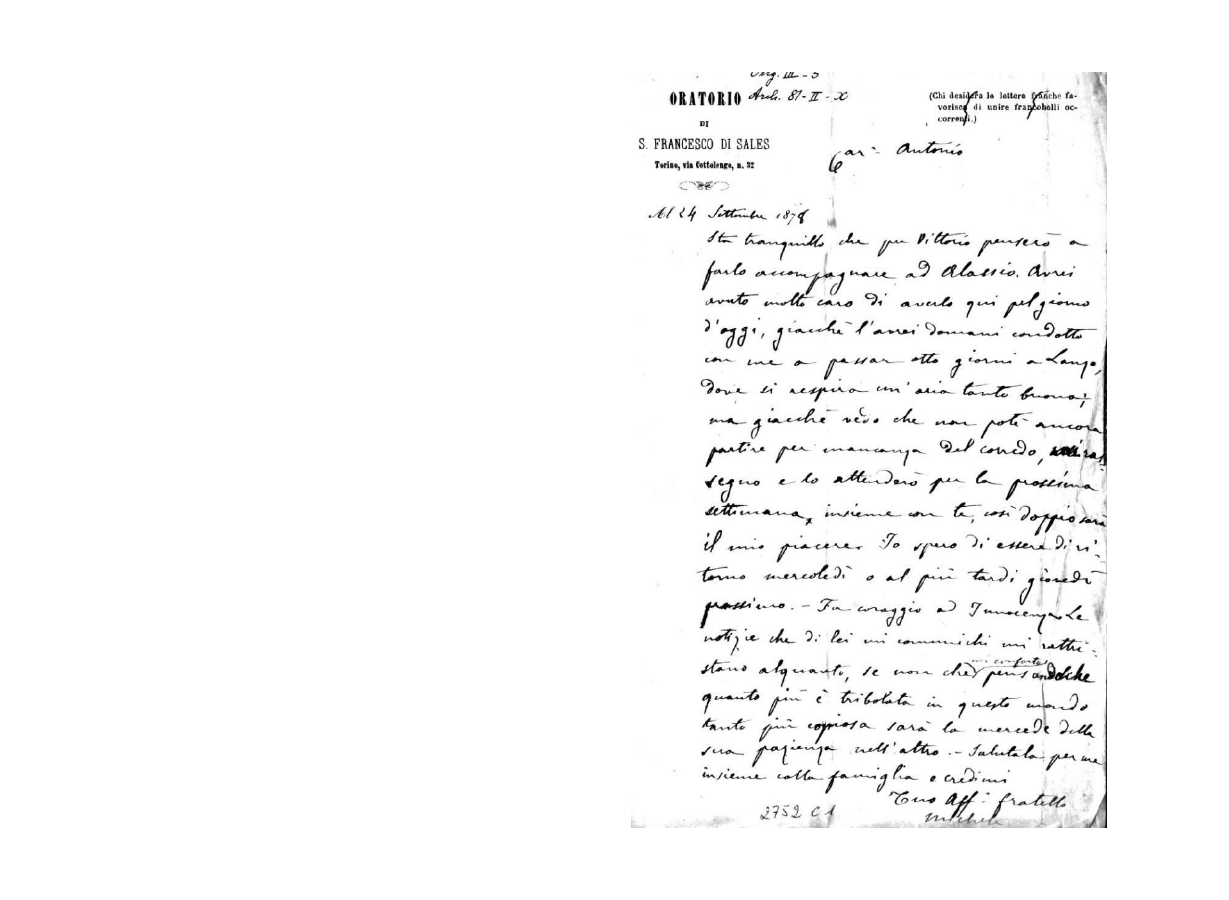 Orig. III - 5
ORATORIO Arch. 81-II-X
DI
S. FRANCESCO DI SALES
Torino, via Cottolengo, n. 32
(Chi desidera le lettere franche fa-
vorisca di unire francobolli oc-
correnti.)
Car.º Antonio
Al 24 Settembre 1878
Sta tranquillo che per Vittorio penserò a
farlo accompagnare ad Alassio. Avrei
avuto molto caro di averlo qui pel giorno
d'oggi, giacchè l'avrei domani condotto
con me a passar otto giorni a Lanzo,
dove si respira un'aria tanto buona;
ma giacchè vedo che non potè ancora
partire per mancanza del corredo, mi ras-
segno e lo attenderò per la prossima
settimana, insieme con te, così doppio sarà
il mio piacere. Io spero di essere di ri-
torno mercoledì o al più tardi giovedì
prossimo. - Fa coraggio ad Innocenza. Le
notizie che di lei mi comunichi mi rattri-
stano alquanto, se non che mi conforta pensando che
quanto più è tribolata in questo mondo
tanto più copiosa sarà la mercede della
sua pazienza nell'altro. - Salutala per me
insieme colla famiglia e credimi
Tuo Aff.º fratello
Michele
2752 C1